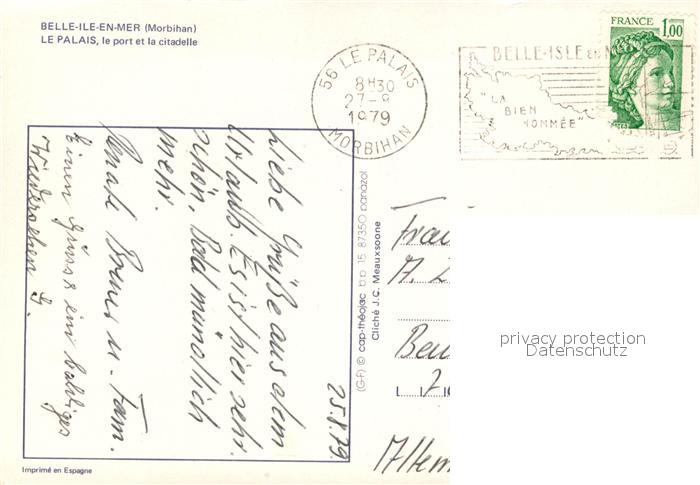 BELLE-ILE-EN-MER (Morbihan)
LE PALAIS, le port et la citadelle
56 LE PALAIS
8H30
27-8
1979
MORBIHAN
BELLE-ISLE en
"LA
BIEN
NOMMÉE"
FRANCE
1,00
25.8.79.
Liebe Grüße aus dem
Urlaub. Es ist hier sehr
schön, Bald mündlich
mehr.
u. Fam.
Einen Gruss ein baldiges
Wiedersehen
(G-F) © cap-théojac b.p. 15 87350 panazol
Cliché J.C. Meauxsoone
Frau
Allem
privacy protection
Datenschutz
Imprimé en Espagne